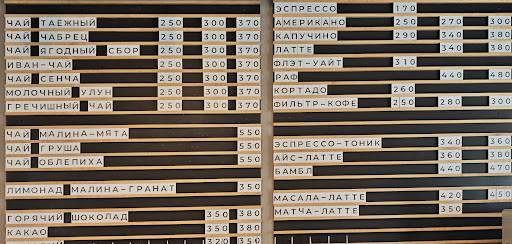 ЧАЙ ТАЁЖНЫЙ 250 300 370
ЧАЙ ЧАБРЕЦ 250 300 370
ЧАЙ ЯГОДНЫЙ СБОР 250 300 370
ИВАН-ЧАЙ 250 300 370
ЧАЙ СЕНЧА 250 300 370
МОЛОЧНЫЙ УЛУН 250 300 370
ГРЕЧИШНЫЙ ЧАЙ 250 300 370
ЧАЙ МАЛИНА-МЯТА 550
ЧАЙ ГРУША 550
ЧАЙ ОБЛЕПИХА 550
ЛИМОНАД МАЛИНА-ГРАНАТ 350
ГОРЯЧИЙ ШОКОЛАД 350 380
КАКАО 350 380
320 350
ЭСПРЕССО 170
АМЕРИКАНО 250 270 300
КАПУЧИНО 290 340 380
ЛАТТЕ 340 380
ФЛЭТ-УАЙТ 310
РАФ 440 480
КОРТАДО 260
ФИЛЬТР-КОФЕ 250 280 300
ЭСПРЕССО-ТОНИК 340 360
АЙС-ЛАТТЕ 360 380
БАМБЛ 440 470
МАСАЛА-ЛАТТЕ 420 450
МАТЧА-ЛАТТЕ 350